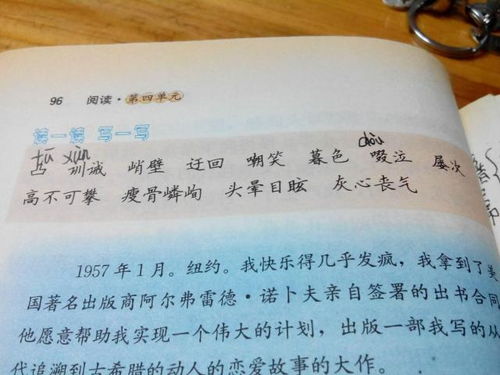 96 阅读·第四单元
读一读 写一写
tū xùn
凸 训诫 峭壁 迂回 嘲笑 暮色 啜泣 屡次
高不可攀 瘦骨嶙峋 头晕目眩 灰心丧气
1957年1月。纽约。我快乐得几乎发疯，我拿到了美
国著名出版商阿尔弗雷德·诺卜夫亲自签署的出书合同
他愿意帮助我实现一个伟大的计划，出版一部我写的从
代追溯到古希腊的动人的恋爱故事的大作。